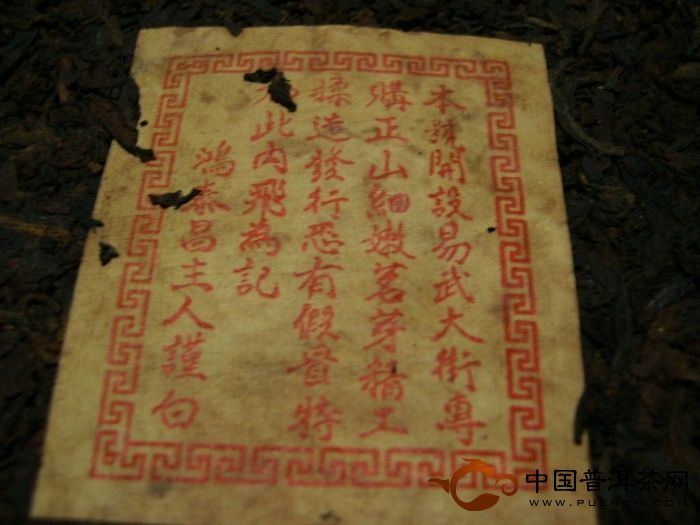 本號開設易武大街專
購正山細嫩茗芽精工
揉造發行恐有假冒特
此內飛為記
鴻泰昌主人謹白
中国普洱茶网
WWW.PUERCN.COM